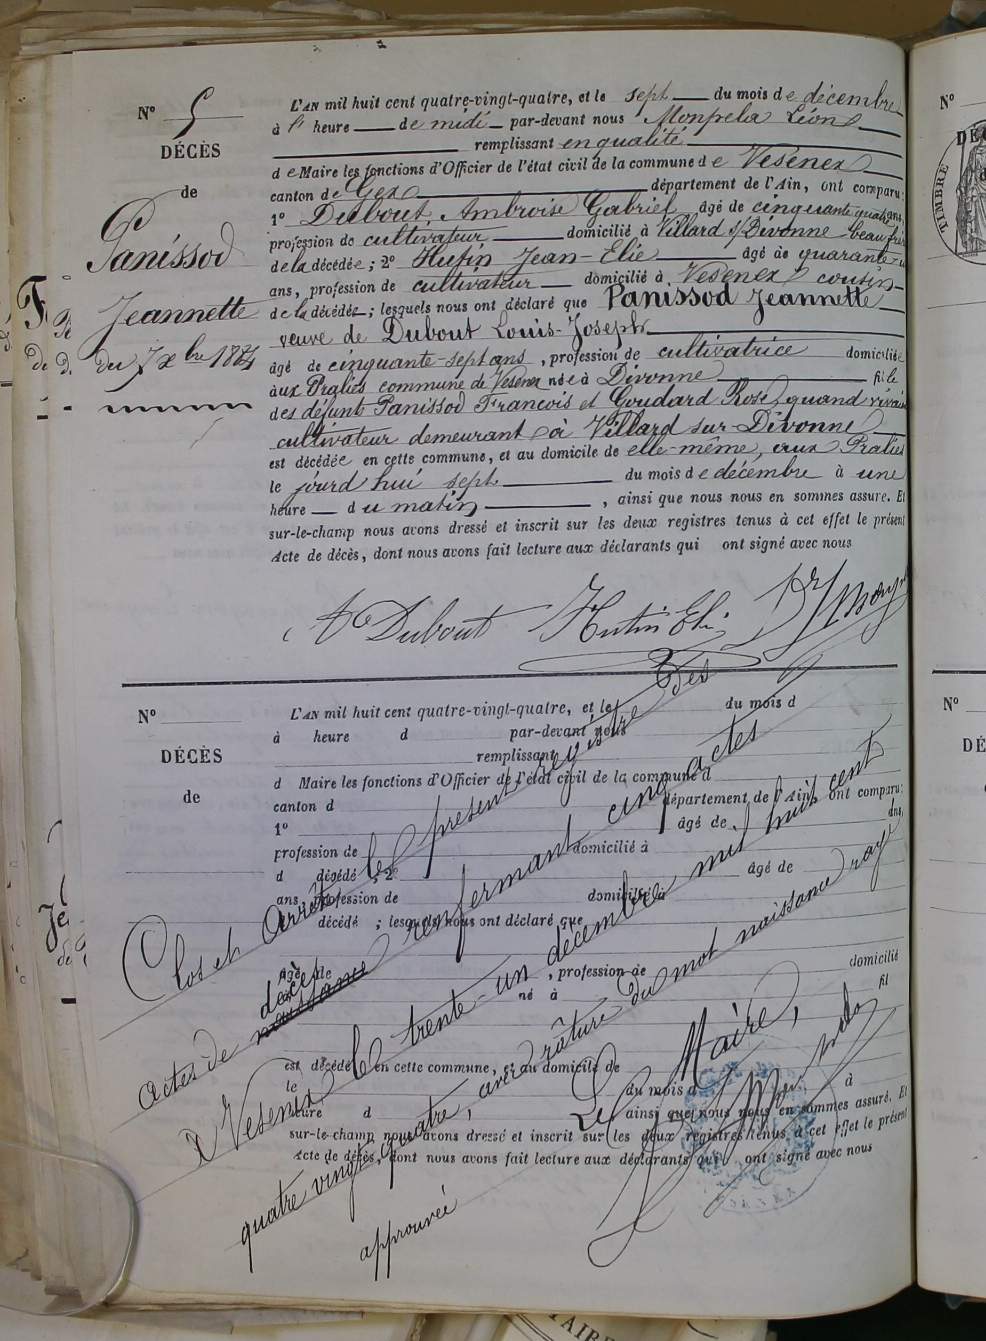 N° 5
DÉCÈS
de
Panissod
Jeannette
du 7 xbre 1884
L'AN mil huit cent quatre-vingt-quatre, et le sept du mois de décembre
à heure de midi par-devant nous Monpela Léon
remplissant en qualité
de Maire les fonctions d'Officier de l'état civil de la commune de Vesenex
canton de Gex département de l'Ain, ont comparu:
1° Dubout Ambroise Gabriel âgé de cinquante quatre ans,
profession de cultivateur domicilié à Villard s/Divonne beau frère
de la décédée; 2° Hutin Jean-Elie âgé de quarante-
ans, profession de cultivateur domicilié à Vesenex cousin
de la décédée; lesquels nous ont déclaré que Panissod Jeannette
veuve de Dubout Louis-Joseph
âgé de cinquante-sept ans, profession de cultivatrice domiciliée
aux Pralies commune de Vesenex née à Divonne fille
des défunts Panissod François et Goudard Rose, quand vivait
cultivateur demeurant à Villard sur-Divonne
est décédée en cette commune, et au domicile de elle-même, aux Pralies
le jourd'hui sept du mois de décembre à une
heure du matin, ainsi que nous nous en sommes assuré. Et
sur-le-champ nous avons dressé et inscrit sur les deux registres tenus à cet effet le présent
Acte de décès, dont nous avons fait lecture aux déclarants qui ont signé avec nous
A Dubout Hutin Eli
N°
DÉCÈS
de
L'AN mil huit cent quatre-vingt-quatre, et le du mois d
à heure d par-devant nous
remplissant
d Maire les fonctions d'Officier de l'état civil de la commune d
canton d département de l'Ain, ont comparu:
1° âgé de ans,
profession de domicilié à
d décédé ; 2° âgé de
ans, profession de domicilié à
d décédé ; lesquels nous ont déclaré que
âgé de , profession de domicilié
né à fil
est décédé en cette commune, et au domicile de
le du mois d à
heure d ainsi que nous nous en sommes assuré. Et
sur-le-champ nous avons dressé et inscrit sur les deux registres tenus à cet effet le présent
Acte de décès, dont nous avons fait lecture aux déclarants qui ont signé avec nous
Clos et arrêté le présent registre des
actes de naissance décès renfermant cinq actes
à Vesenex le trente-un décembre mil huit cent
quatre vingt quatre, avec râture du mot naissance rayé
approuvée
Le Maire,
N°
TIMBRE
N°